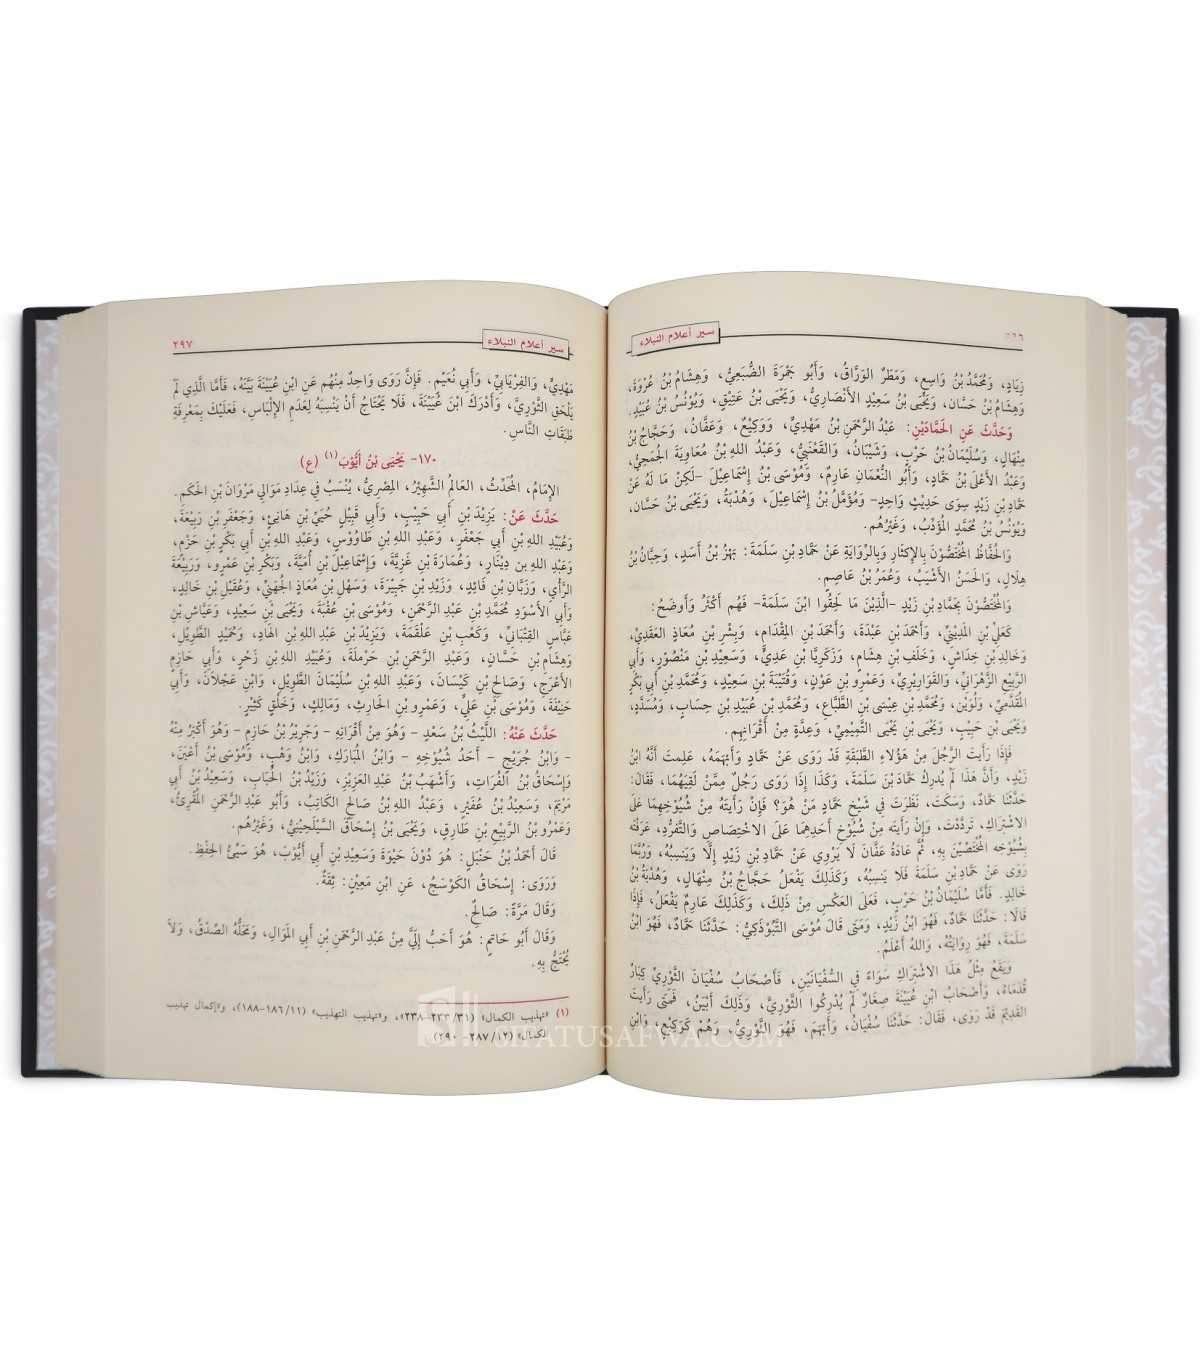 سير أعلام النبلاء
زِيَادٍ، وَمُحَمَّدُ بْنُ وَاسِعٍ، وَمَطَرٌ الوَرَّاقُ، وَأَبُو جَمْرَةَ الضُّبَعِيُّ، وَهِشَامُ بْنُ عُرْوَةَ،
وَهِشَامُ بْنُ حَسَّان، وَيَحْيَى بْنُ سَعِيْدٍ الأَنْصَارِيُّ، وَيَحْيَى بْنُ عَتِيْقٍ، وَيُوْنُسُ بْنُ عُبَيْدٍ.
وَحَدَّثَ عَنِ الحَمَّادَيْنِ: عَبْدُ الرَّحْمَنِ بْنُ مَهْدِيٍّ، وَوَكِيْعٌ، وَعَفَّانُ، وَحَجَّاجُ بْنُ
مِنْهَالٍ، وَسُلَيْمَانُ بْنُ حَرْبٍ، وَشَيْبَانُ، وَالقَعْنَبِيُّ، وَعَبْدُ اللهِ بْنُ مُعَاوِيَةَ الجُمَحِيُّ،
وَعَبْدُ الأَعْلَى بْنُ حَمَّادٍ، وَأَبُو النُّعْمَانِ عَارِمٌ، وَمُوْسَى بْنُ إِسْمَاعِيْلَ –لَكِنْ مَا لَهُ عَنْ
حَمَّادِ بْنِ زَيْدٍ سِوَى حَدِيْثٍ وَاحِدٍ– وَمُؤَمَّلُ بْنُ إِسْمَاعِيْلَ، وَهُدْبَةُ، وَيَحْيَى بْنُ حَسَّان،
وَيُوْنُسُ بْنُ مُحَمَّدٍ المُؤَدِّبُ، وَغَيْرُهُم.
وَالحُفَّاظُ المُخْتَصُّوْنَ بِالإِكْثَارِ وَبِالرِّوَايَةِ عَنْ حَمَّادِ بْنِ سَلَمَةَ: بَهْزُ بْنُ أَسَدٍ، وَحِبَّانُ بْنُ
هِلَالٍ، وَالحَسَنُ الأَشْيَبُ، وَعُمَرُ بْنُ عَاصِمٍ.
وَالمُخْتَصُّوْنَ بِحَمَّادِ بْنِ زَيْدٍ –الَّذِيْنَ مَا لَحِقُوا ابْنَ سَلَمَةَ– فَهُم أَكْثَرُ وَأَوضَحُ:
كَعَلِيِّ بْنِ المَدِيْنِيِّ، وَأَحْمَدَ بْنِ عَبْدَةَ، وَأَحْمَدَ بْنِ المِقْدَامِ، وَبِشْرِ بْنِ مُعَاذٍ العَقَدِيِّ،
وَخَالِدِ بْنِ خِدَاشٍ، وَخَلَفِ بْنِ هِشَامٍ، وَزَكَرِيَّا بْنِ عَدِيٍّ، وَسَعِيْدِ بْنِ مَنْصُوْرٍ، وَأَبِي
الرَّبِيْعِ الزَّهْرَانِيِّ، وَالقَوَارِيْرِيِّ، وَعَمْرِو بْنِ عَوْنٍ، وَقُتَيْبَةَ بْنِ سَعِيْدٍ، وَمُحَمَّدِ بْنِ أَبِي بَكْرٍ
المُقَدَّمِيِّ، وَلُوَيْنٍ، وَمُحَمَّدِ بْنِ عِيْسَى بْنِ الطَّبَّاعِ، وَمُحَمَّدِ بْنِ عُبَيْدِ بْنِ حِسَابٍ، وَمُسَدَّدٍ،
وَيَحْيَى بْنِ حَبِيْبٍ، وَيَحْيَى بْنِ يَحْيَى التَّمِيْمِيِّ، وَعِدَّةٍ مِنْ أَقْرَانِهِم.
فَإِذَا رَأَيتَ الرَّجُلَ مِنْ هَؤُلَاءِ الطَّبَقَةِ قَدْ رَوَى عَنْ حَمَّادٍ وَأَبْهَمَهُ، عَلِمتَ أَنَّهُ ابْنُ
زَيْدٍ، وَأَنَّ هَذَا لَمْ يُدرِكْ حَمَّادَ بْنَ سَلَمَةَ، وَكَذَا إِذَا رَوَى رَجُلٌ مِمَّنْ لَقِيَهُمَا، فَقَالَ:
حَدَّثَنَا حَمَّادٌ، وَسَكَتَ، نَظَرْتَ فِي شَيْخِ حَمَّادٍ مَنْ هُوَ؟ فَإِنْ رَأَيتَهُ مِنْ شُيُوْخِهِمَا عَلَى
الاشْتِرَاكِ، تَرَدَّدْتَ، وَإِنْ رَأَيتَه مِنْ شُيُوْخِ أَحَدِهِمَا عَلَى الاخْتِصَاصِ وَالتَّفَرُّدِ، عَرَفْتَه
بِشُيُوْخِهِ المُخْتَصِّيْنَ بِهِ، ثُمَّ عَادَةُ عَفَّانَ لَا يَرْوِي عَنْ حَمَّادِ بْنِ زَيْدٍ إِلَّا وَيَنْسِبُهُ، وَرُبَّمَا
رَوَى عَنْ حَمَّادِ بْنِ سَلَمَةَ فَلَا يَنسِبُهُ، وَكَذَلِكَ يَفْعَلُ حَجَّاجُ بْنُ مِنْهَالٍ، وَهُدْبَةُ بْنُ
خَالِدٍ. فَأَمَّا سُلَيْمَانُ بْنُ حَرْبٍ، فَعَلَى العَكْسِ مِنْ ذَلِكَ، وَكَذَلِكَ عَارِمٌ يَفْعَلُ، فَإِذَا
قَالَا: حَدَّثَنَا حَمَّادٌ، فَهُوَ ابْنُ زَيْدٍ، وَمَتَى قَالَ مُوْسَى التَّبُوْذَكِيُّ: حَدَّثَنَا حَمَّادٌ، فَهُوَ ابْنُ
سَلَمَةَ، فَهُوَ رِوَايَتُهُ، وَاللهُ أَعْلَمُ.
وَيَقَعُ مِثْلُ هَذَا الاشْتِرَاكِ سَوَاءً فِي السُّفْيَانَيْنِ، فَأَصْحَابُ سُفْيَانَ الثَّوْرِيِّ كِبَارٌ
قُدَمَاءُ، وَأَصْحَابُ ابْنِ عُيَيْنَةَ صِغَارٌ لَمْ يُدْرِكُوا الثَّوْرِيَّ، وَذَلِكَ أَبْيَنُ، فَمَتَى رَأَيتَ
القَدِيْمَ قَدْ رَوَى، فَقَالَ: حَدَّثَنَا سُفْيَانُ، وَأَبْهَمَ، فَهُوَ الثَّوْرِيُّ، وَهُمْ كَوَكِيْعٍ، وَابْنِ
سير أعلام النبلاء ٢٩٧
مَهْدِيٍّ، وَالفِرْيَابِيِّ، وَأَبِي نُعَيْمٍ. فَإِنْ رَوَى وَاحِدٌ مِنْهُم عَنِ ابْنِ عُيَيْنَةَ بَيَّنَهُ، فَأَمَّا الَّذِي لَمْ
يَلْحَقِ الثَّوْرِيَّ، وَأَدْرَكَ ابْنَ عُيَيْنَةَ، فَلَا يَحْتَاجُ أَنْ يَنْسِبَهُ لِعَدَمِ الإِلْبَاسِ، فَعَلَيْكَ بِمَعْرِفَةِ
طَبَقَاتِ النَّاسِ.
١٧٠– يَحْيَى بْنُ أَيُّوْبَ(١) (ع)
الإِمَامُ، المُحَدِّثُ، العَالِمُ الشَّهِيْرُ، المِصْرِيُّ، يُنْسَبُ فِي عِدَادِ مَوَالِي مَرْوَانَ بْنِ الحَكَمِ.
حَدَّثَ عَنْ: يَزِيْدَ بْنِ أَبِي حَبِيْبٍ، وَأَبِي قَبِيْلٍ حُيَيِّ بْنِ هَانِئٍ، وَجَعْفَرِ بْنِ رَبِيْعَةَ،
وَعُبَيْدِ اللهِ بْنِ أَبِي جَعْفَرٍ، وَعَبْدِ اللهِ بْنِ طَاوُوْسٍ، وَعَبْدِ اللهِ بْنِ أَبِي بَكْرِ بْنِ حَزْمٍ،
وَعَبْدِ اللهِ بن دِيْنَارٍ، وَعُمَارَةَ بْنِ غَزِيَّةَ، وَإِسْمَاعِيْلَ بْنِ أُمَيَّةَ، وَبَكْرِ بْنِ عَمْرٍو، وَرَبِيْعَةَ
الرَّأْيِ، وَزَبَّانِ بْنِ فَائِدٍ، وَزَيْدِ بْنِ جَبِيْرَةَ، وَسَهْلِ بْنِ مُعَاذٍ الجُهَنِيِّ، وَعُقَيْلِ بْنِ خَالِدٍ،
وَأَبِي الأَسْوَدِ مُحَمَّدِ بْنِ عَبْدِ الرَّحْمَنِ، وَمُوْسَى بْنِ عُقْبَةَ، وَيَحْيَى بْنِ سَعِيْدٍ، وَعَيَّاشِ بْنِ
عَبَّاسٍ القِتْبَانِيِّ، وَكَعْبِ بْنِ عَلْقَمَةَ، وَيَزِيْدَ بْنِ عَبْدِ اللهِ بْنِ الهَادِ، وَحُمَيْدٍ الطَّوِيْلِ،
وَهِشَامِ بْنِ حَسَّانٍ، وَعَبْدِ الرَّحْمَنِ بْنِ حَرْمَلَةَ، وَعُبَيْدِ اللهِ بْنِ زَحْرٍ، وَأَبِي حَازِمٍ
الأَعْرَجِ، وَصَالِحِ بْنِ كَيْسَانَ، وَعَبْدِ اللهِ بْنِ سُلَيْمَانَ الطَّوِيْلِ، وَابْنِ عَجْلَانَ، وَأَبِي
حَنِيْفَةَ، وَمُوْسَى بْنِ عَلِيٍّ، وَعَمْرِو بْنِ الحَارِثِ، وَمَالِكٍ، وَخَلْقٍ كَثِيْرٍ.
حَدَّثَ عَنْهُ: اللَّيْثُ بْنُ سَعْدٍ – وَهُوَ مِنْ أَقْرَانِهِ – وَجَرِيْرُ بْنُ حَازِمٍ – وَهُوَ أَكْبَرُ مِنْهُ
– وَابْنُ جُرَيْجٍ – أَحَدُ شُيُوْخِهِ – وَابْنُ المُبَارَكِ، وَابْنُ وَهْبٍ، وَمُوْسَى بْنُ أَعْيَنَ،
وَإِسْحَاقُ بْنُ الفُرَاتِ، وَأَشْهَبُ بْنُ عَبْدِ العَزِيْزِ، وَزَيْدُ بْنُ الحُبَابِ، وَسَعِيْدُ بْنُ أَبِي
مَرْيَمَ، وَسَعِيْدُ بْنُ عُفَيْرٍ، وَعَبْدُ اللهِ بْنُ صَالِحٍ الكَاتِبُ، وَأَبُو عَبْدِ الرَّحْمَنِ المُقْرِئُ،
وَعَمْرُو بْنُ الرَّبِيْعِ بْنِ طَارِقٍ، وَيَحْيَى بْنُ إِسْحَاقَ السَّيْلَحِيْنِيُّ، وَغَيْرُهُم.
قَالَ أَحْمَدُ بْنُ حَنْبَلٍ: هُوَ دُوْنَ حَيْوَةَ وَسَعِيْدِ بْنِ أَبِي أَيُّوْبَ، هُوَ سَيِّئُ الحِفْظِ.
وَرَوَى: إِسْحَاقُ الكَوْسَجُ، عَنِ ابْنِ مَعِيْنٍ: ثِقَةٌ.
وَقَالَ مَرَّةً: صَالِحٌ.
وَقَالَ أَبُو حَاتِمٍ: هُوَ أَحَبُّ إِلَيَّ مِنْ عَبْدِ الرَّحْمَنِ بْنِ أَبِي المَوَالِ، وَمَحَلُّهُ الصِّدْقُ، وَلَا
يُحْتَجُّ بِهِ.
(١) «تهذيب الكمال» (٣١/ ٢٣٣–٢٣٨)، و«تهذيب التهذيب» (١١/ ١٨٦–١٨٨)، و«إكمال تهذيب
الكمال» (١٢/ ٢٨٧–٢٩٠)
SIFATUSAFWA.COM